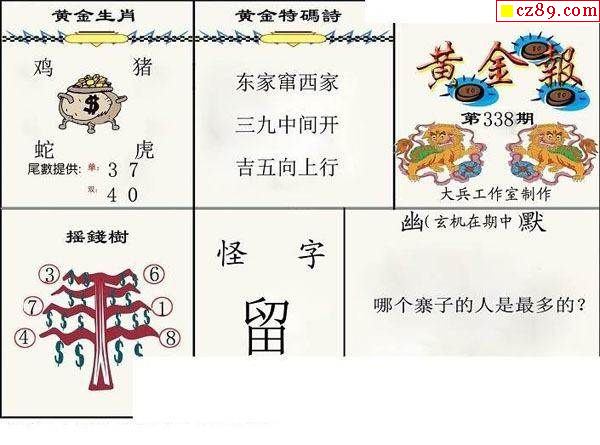 cz89.com
黄金生肖
鸡 猪
$
蛇 虎
尾數提供: 单: 3 7
双: 4 0
黄金特碼詩
东家窜西家
三九中间开
吉五向上行
黄金報
第338期
大兵工作室制作
摇錢樹
③ ⑥
⑦ ①
④ ⑧
$ $ $ $
$ $ $ $
怪 字
留
幽(玄机在期中)默
哪个寨子的人是最多的?